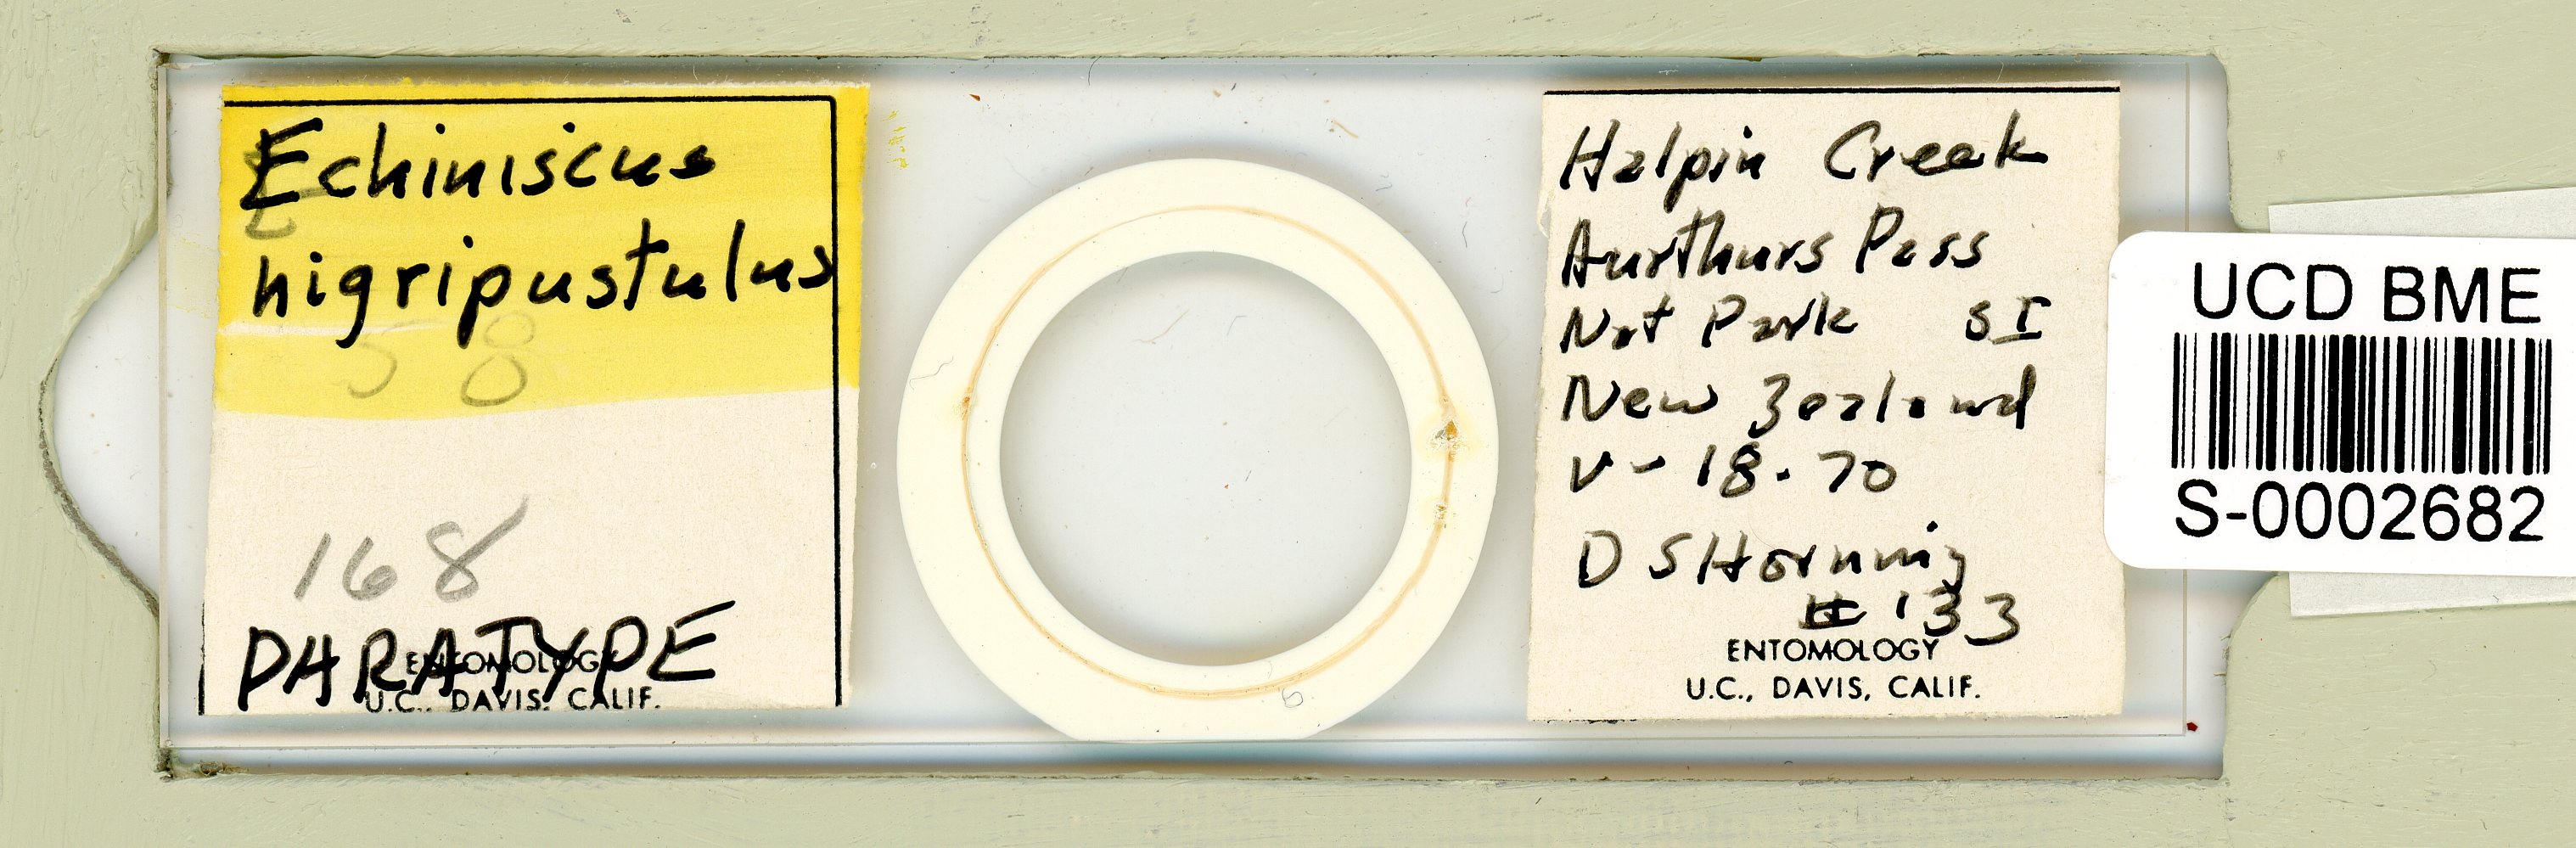 Echiniscus
nigripustulus
58
168
PARATYPE
ENTOMOLOGY
U.C., DAVIS, CALIF.
Halpin Creek
Aurthurs Pass
Nat Park SI
New Zealand
V-18.70
D S Horning
# 133
ENTOMOLOGY
U.C., DAVIS, CALIF.
UCD BME
S-0002682